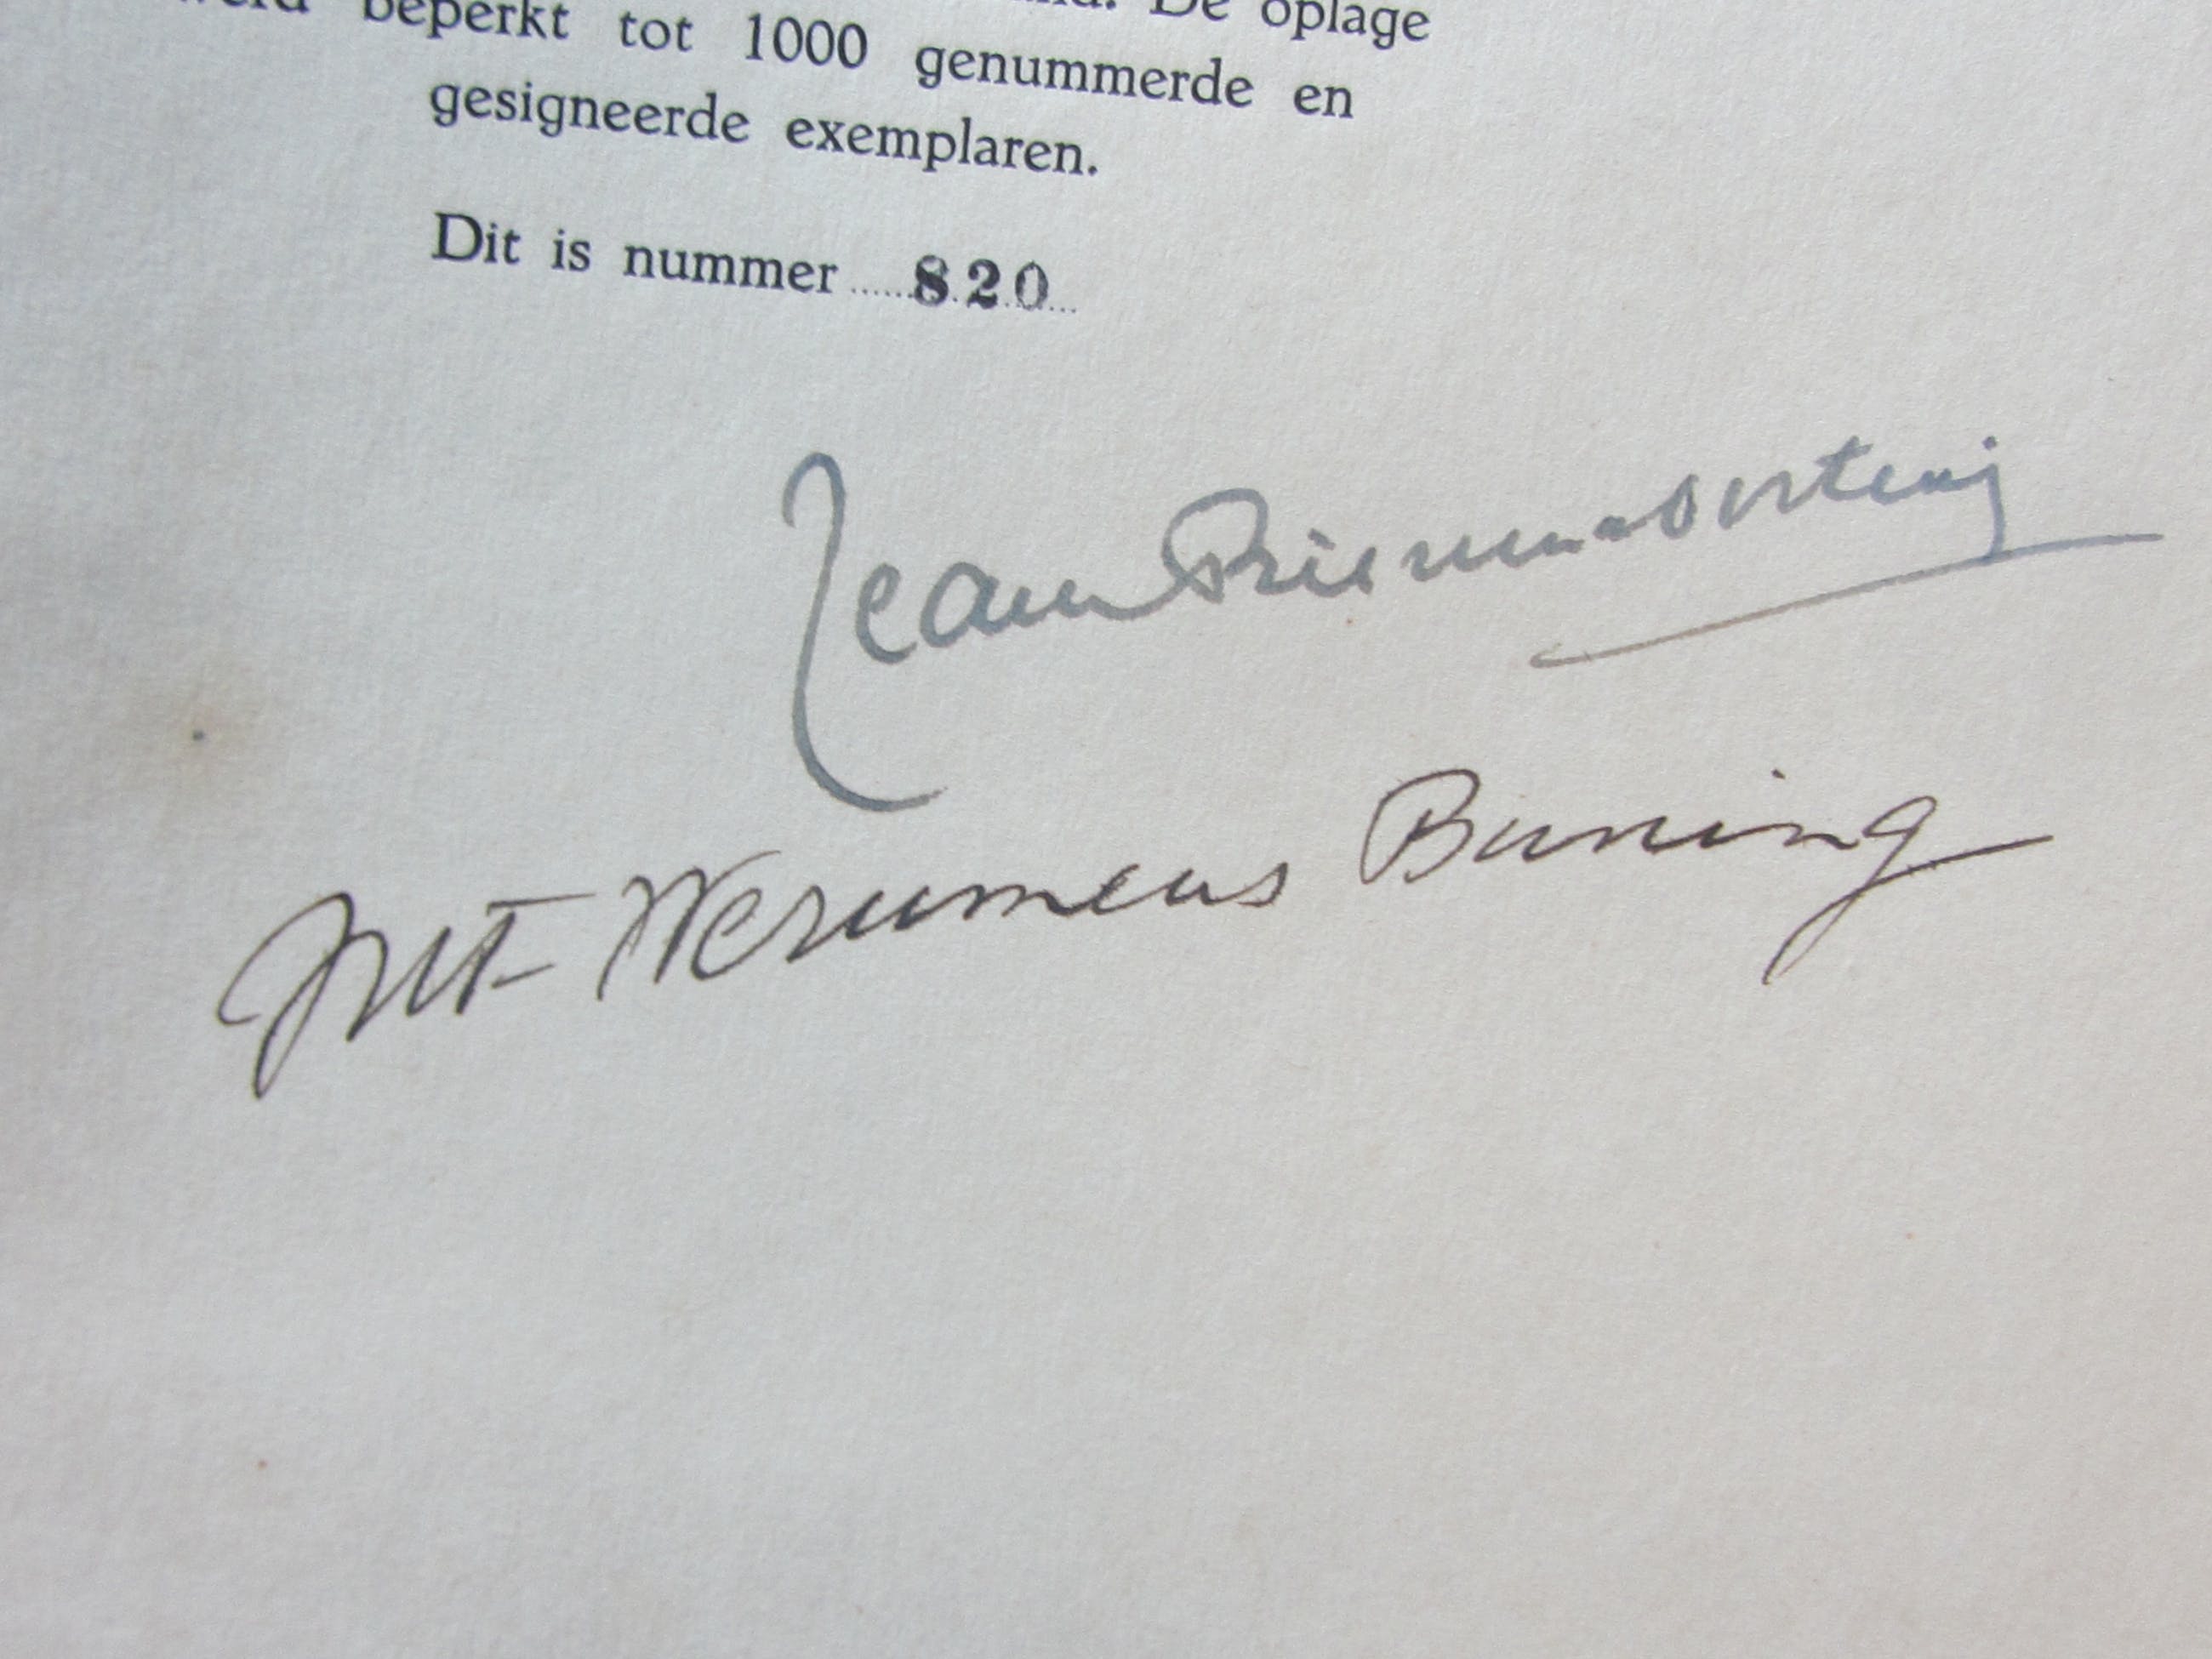 De oplage
beperkt tot 1000 genummerde en
gesigneerde exemplaren.
Dit is nummer 820
Jean
JWF Werumeus Buning